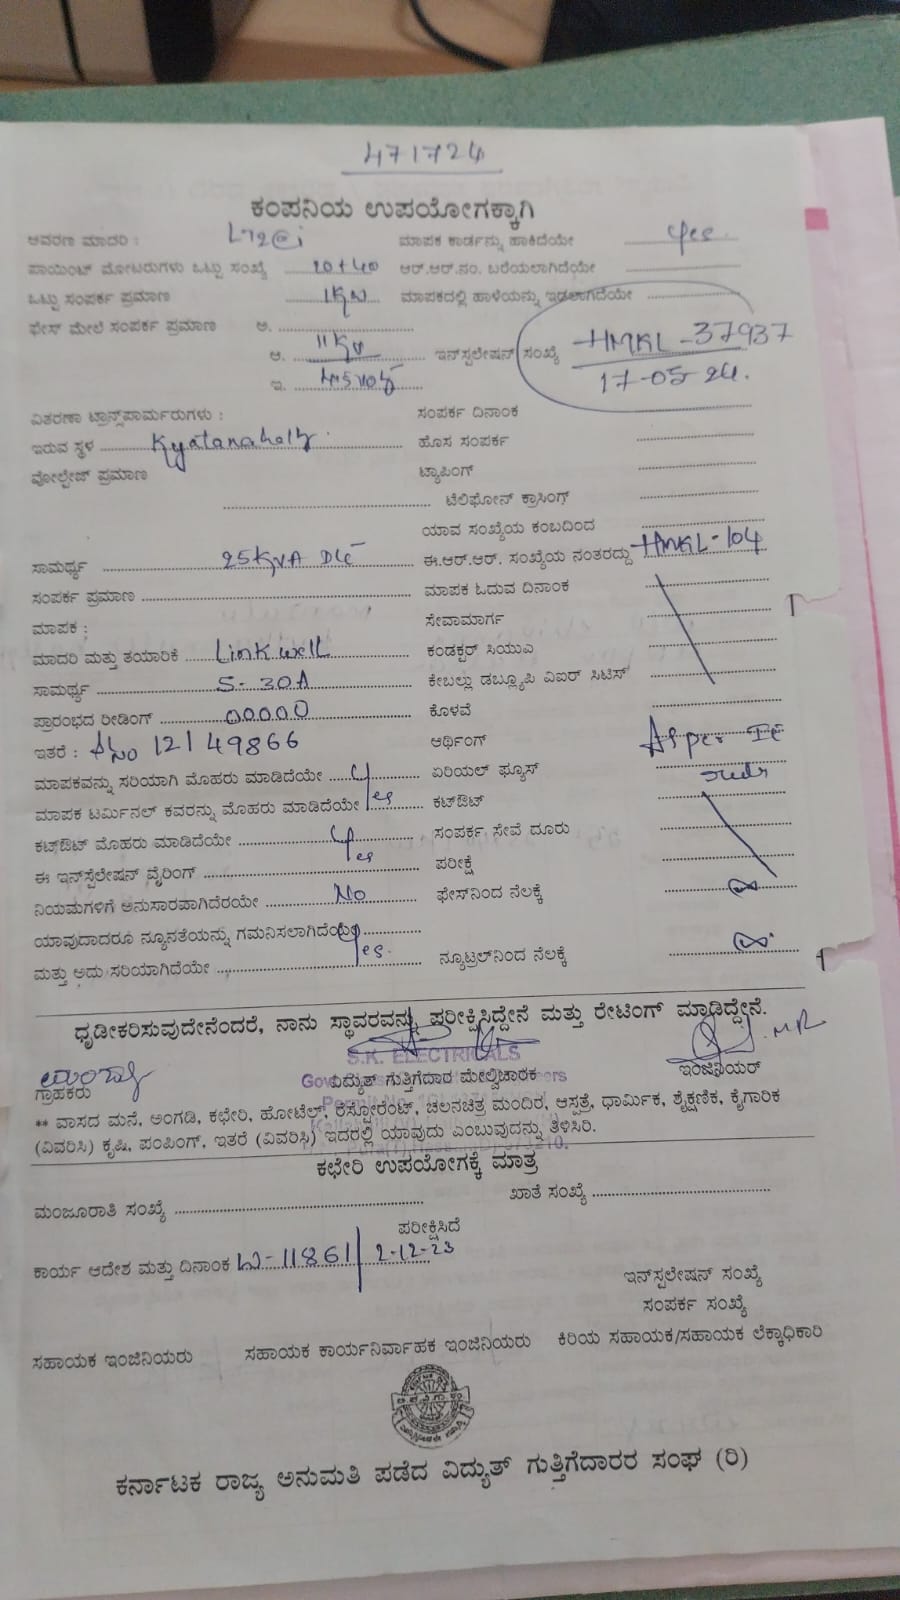 471724
ಕಂಪನಿಯ ಉಪಯೋಗಕ್ಕಾಗಿ
ಆವರಣ ಮಾದರಿ : ಮಾಪಕ ಕಾರ್ಡನ್ನು ಹಾಕಿದೆಯೇ Yes
ಪಾಯಿಂಟ್ ಮೋಟರುಗಳು ಒಟ್ಟು ಸಂಖ್ಯೆ 20+40 ಆರ್.ಆರ್.ನಂ. ಬರೆಯಲಾಗಿದೆಯೇ
ಒಟ್ಟು ಸಂಪರ್ಕ ಪ್ರಮಾಣ 1KW ಮಾಪಕದಲ್ಲಿ ಹಾಳೆಯನ್ನು ಇಡಲಾಗಿದೆಯೇ
ಫೇಸ್ ಮೇಲೆ ಸಂಪರ್ಕ ಪ್ರಮಾಣ ಅ.
ಆ. 11KV ಇನ್‌ಸ್ಟಲೇಷನ್ ಸಂಖ್ಯೆ HMKL-37937
ಇ. 17-05-24.
ವಿತರಣಾ ಟ್ರಾನ್ಸ್‌ಪಾರ್ಮರುಗಳು : ಸಂಪರ್ಕ ದಿನಾಂಕ
ಇರುವ ಸ್ಥಳ Kyatanahally ಹೊಸ ಸಂಪರ್ಕ
ವೋಲ್ಟೇಜ್ ಪ್ರಮಾಣ ಟ್ಯಾಪಿಂಗ್
ಟೆಲಿಫೋನ್ ಕ್ರಾಸಿಂಗ್
ಯಾವ ಸಂಖ್ಯೆಯ ಕಂಬದಿಂದ
ಸಾಮರ್ಥ್ಯ 25KVA ಈ.ಆರ್.ಆರ್. ಸಂಖ್ಯೆಯ ನಂತರದ್ದು HMKL-104
ಸಂಪರ್ಕ ಪ್ರಮಾಣ ಮಾಪಕ ಓದುವ ದಿನಾಂಕ
ಮಾಪಕ : ಸೇವಾಮಾರ್ಗ
ಮಾದರಿ ಮತ್ತು ತಯಾರಿಕೆ Linkwell ಕಂಡಕ್ಟರ್ ಸಿಯುವಿ
ಸಾಮರ್ಥ್ಯ 5-30A ಕೇಬಲ್ಲು ಡಬ್ಲ್ಯೂಪಿ ವಿಐರ್ ಸಿಟಿಸ್
ಪ್ರಾರಂಭದ ರೀಡಿಂಗ್ 00000 ಕೊಳವೆ
ಇತರೆ : SNo 12149866 ಆರ್ಥಿಂಗ್ As per IE
ಮಾಪಕವನ್ನು ಸರಿಯಾಗಿ ಮೊಹರು ಮಾಡಿದೆಯೇ Yes ಏರಿಯಲ್ ಫ್ಯೂಸ್ rules
ಮಾಪಕ ಟರ್ಮಿನಲ್ ಕವರನ್ನು ಮೊಹರು ಮಾಡಿದೆಯೇ ಕಟ್‌ಔಟ್
ಕಟ್‌ಔಟ್ ಮೊಹರು ಮಾಡಿದೆಯೇ Yes ಸಂಪರ್ಕ ಸೇವೆ ದೂರು
ಈ ಇನ್‌ಸ್ಟಲೇಷನ್ ವೈರಿಂಗ್ ಪರೀಕ್ಷೆ
ನಿಯಮಗಳಿಗೆ ಅನುಸಾರವಾಗಿದೆರಯೇ No ಫೇಸ್‌ನಿಂದ ನೆಲಕ್ಕೆ ∞
ಯಾವುದಾದರೂ ನ್ಯೂನತೆಯನ್ನು ಗಮನಿಸಲಾಗಿದೆಯೇ Yes.
ಮತ್ತು ಅದು ಸರಿಯಾಗಿದೆಯೇ ನ್ಯೂಟ್ರಲ್‌ನಿಂದ ನೆಲಕ್ಕೆ ∞
ಧೃಡೀಕರಿಸುವುದೇನೆಂದರೆ, ನಾನು ಸ್ಥಾವರವನ್ನು ಪರೀಕ್ಷಿಸಿದ್ದೇನೆ ಮತ್ತು ರೇಟಿಂಗ್ ಮಾಡಿದ್ದೇನೆ.
S.K. ELECTRICALS
ಗ್ರಾಹಕರು ವಿದ್ಯುತ್ ಗುತ್ತಿಗೆದಾರ ಮೇಲ್ವಿಚಾರಕ ಇಂಜಿನಿಯರ್
** ವಾಸದ ಮನೆ, ಅಂಗಡಿ, ಕಛೇರಿ, ಹೋಟೆಲ್, ರೆಸ್ಟೋರೆಂಟ್, ಚಲನಚಿತ್ರ ಮಂದಿರ, ಆಸ್ಪತ್ರೆ, ಧಾರ್ಮಿಕ, ಶೈಕ್ಷಣಿಕ, ಕೈಗಾರಿಕ
(ವಿವರಿಸಿ) ಕೃಷಿ, ಪಂಪಿಂಗ್, ಇತರೆ (ವಿವರಿಸಿ) ಇದರಲ್ಲಿ ಯಾವುದು ಎಂಬುವುದನ್ನು ತಿಳಿಸಿರಿ.
ಕಛೇರಿ ಉಪಯೋಗಕ್ಕೆ ಮಾತ್ರ
ಮಂಜೂರಾತಿ ಸಂಖ್ಯೆ ಖಾತೆ ಸಂಖ್ಯೆ
ಪರೀಕ್ಷಿಸಿದೆ
ಕಾರ್ಯ ಆದೇಶ ಮತ್ತು ದಿನಾಂಕ W-11861 2-12-23
ಇನ್‌ಸ್ಟಲೇಷನ್ ಸಂಖ್ಯೆ
ಸಂಪರ್ಕ ಸಂಖ್ಯೆ
ಸಹಾಯಕ ಇಂಜಿನಿಯರು ಸಹಾಯಕ ಕಾರ್ಯನಿರ್ವಾಹಕ ಇಂಜಿನಿಯರು ಕಿರಿಯ ಸಹಾಯಕ/ಸಹಾಯಕ ಲೆಕ್ಕಾಧಿಕಾರಿ
ಕರ್ನಾಟಕ ರಾಜ್ಯ ಅನುಮತಿ ಪಡೆದ ವಿದ್ಯುತ್ ಗುತ್ತಿಗೆದಾರರ ಸಂಘ (ರಿ)